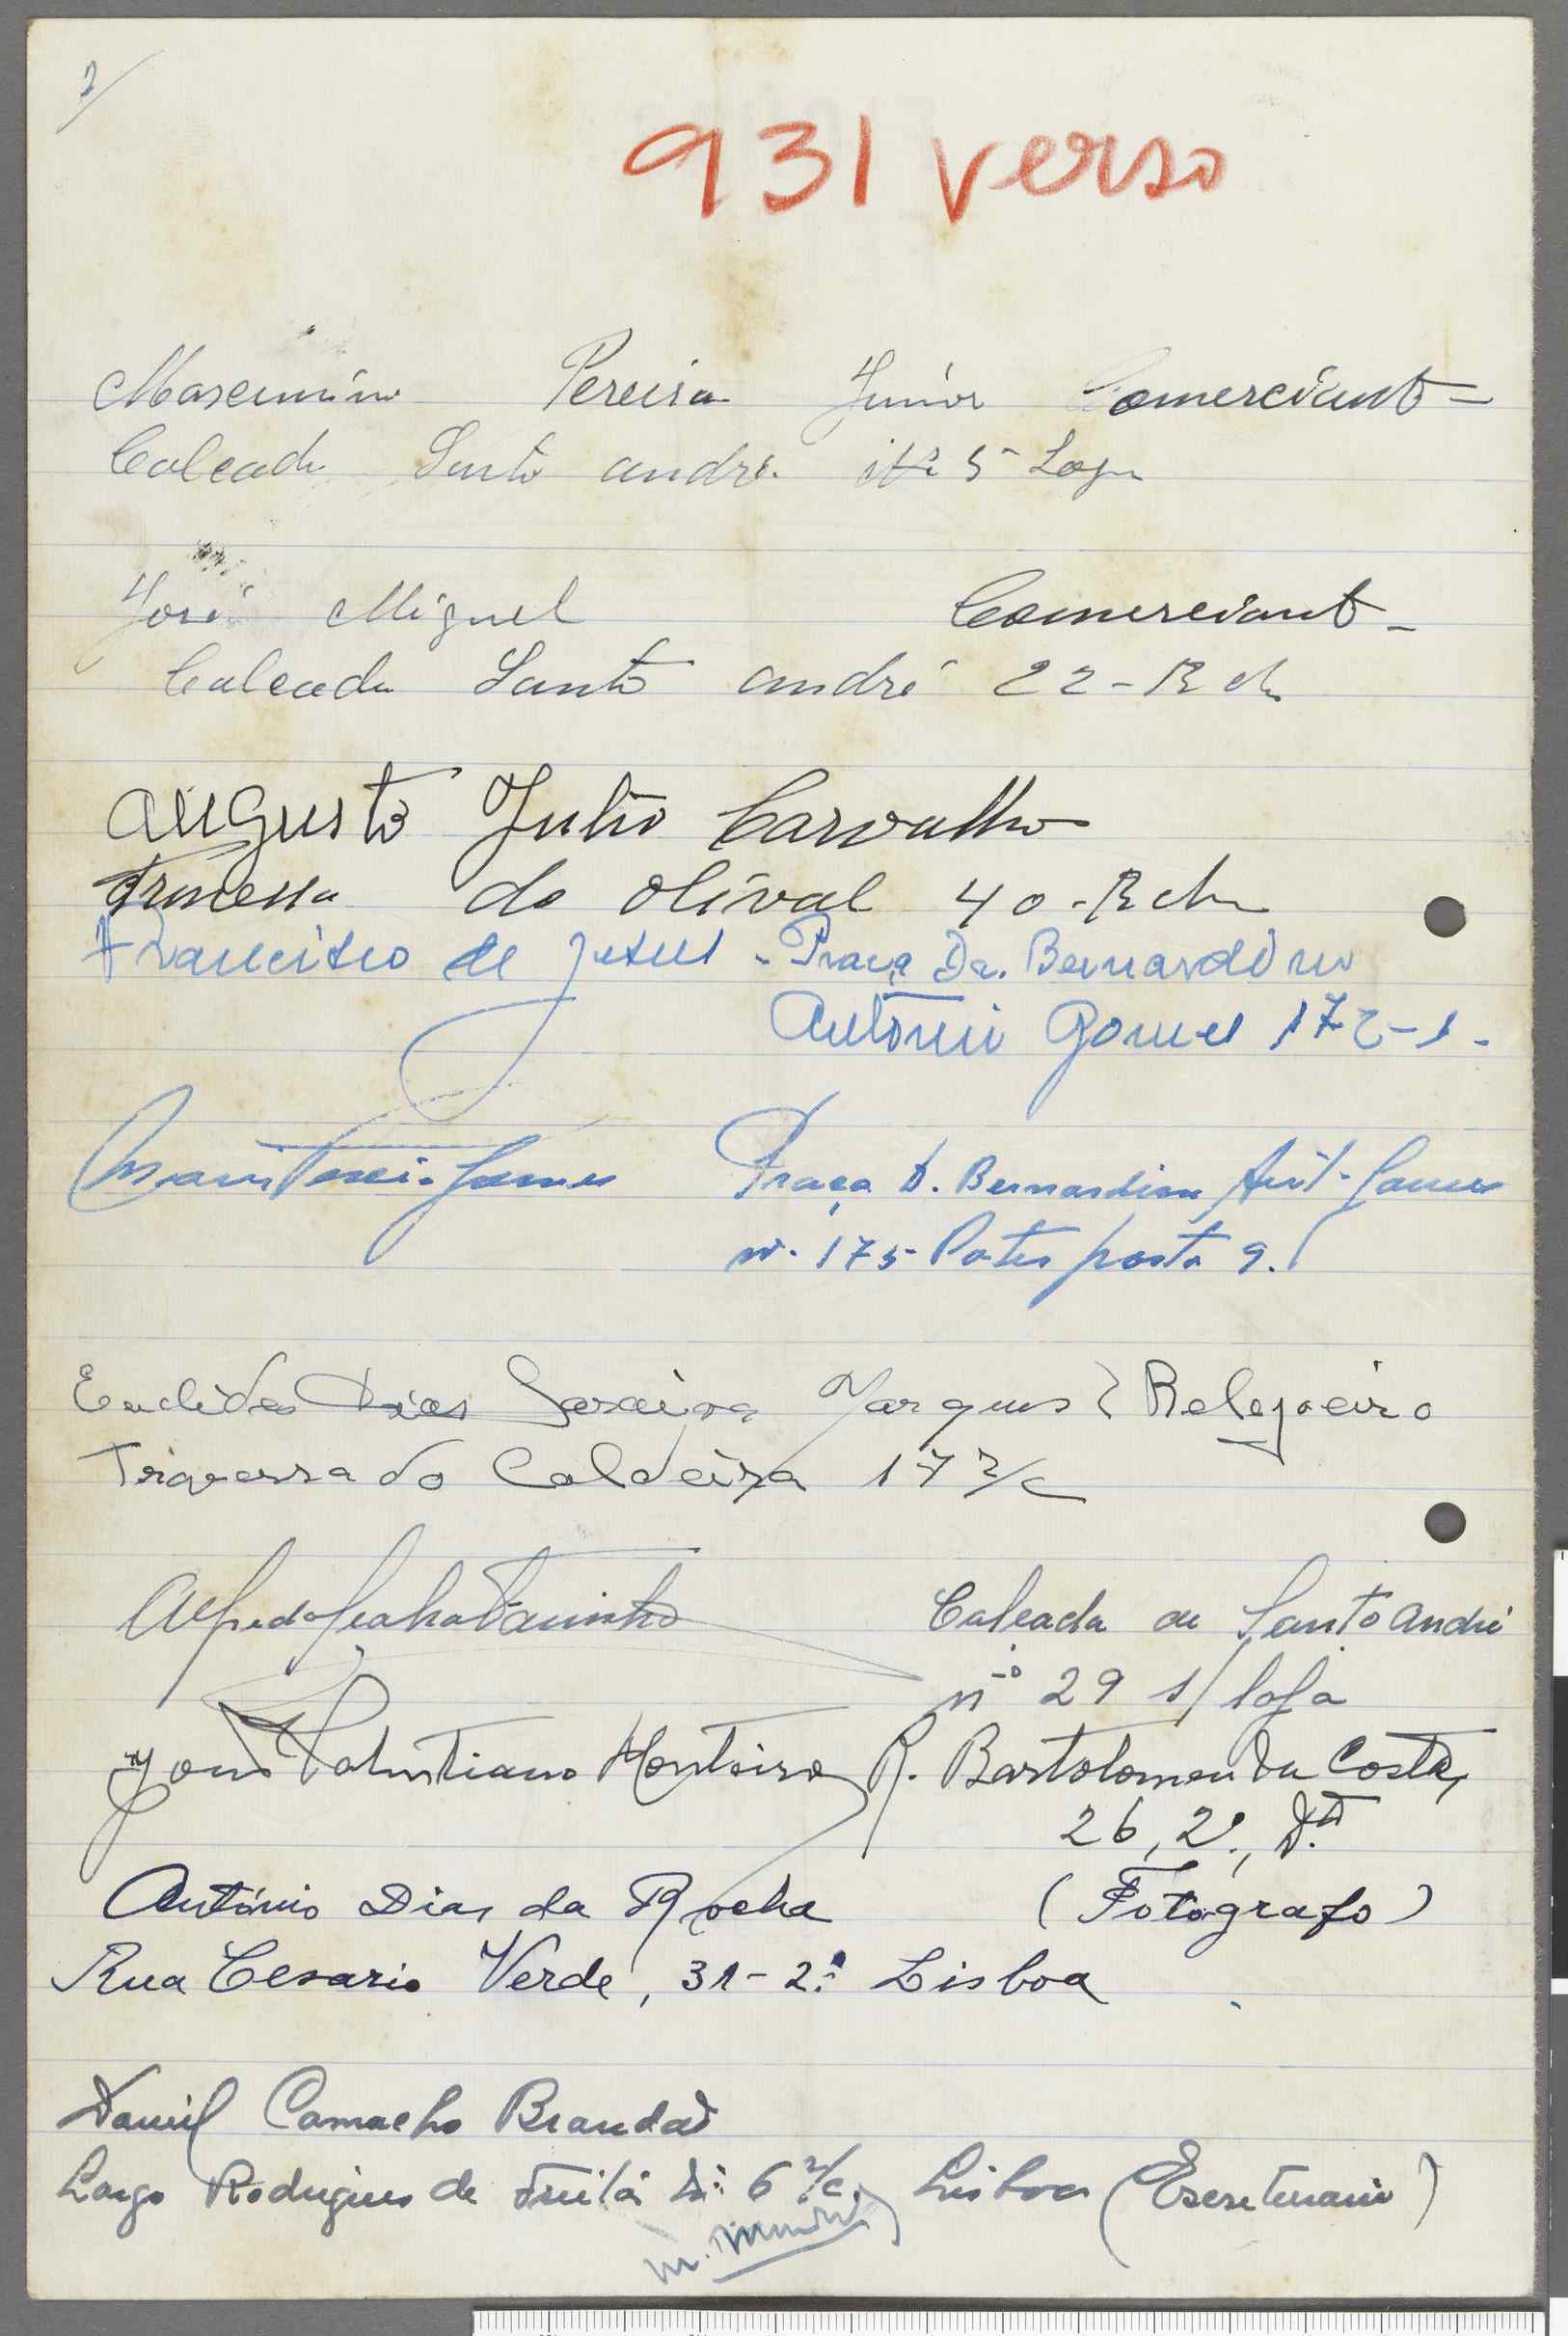 2/
931 verso
Maseimino Pereira Junior Comerciant-
Calcada Santo andre Nº 5 Loja
José Miguel Comerciant-
Calcada Santo andré 22-R ch
Augusto Julio Carvalho
Travessa do Olival 40-R ch
Francisco de Jesus - Praça Dr. Bernardino
António Gomes 172-1-
Gomes Praça D. Bernardino Ant- Gomes
nº 175- Pateo porta 9.
Euclides Dias Saraiva Marques Relojoeiro
Travessa do Caldeira 17 r/c
Alfredo Farinha Calcada de Santo André
nº 29 s/ loja
Monteiro R. Bartolomeu da Costa,
26, 2º, D.to
António Dias da Rocha (Fotógrafo)
Rua Cesario Verde, 31-2º Lisboa
Daniel Camacho Brandão
Largo Rodrigues de Freitas Nº 6 r/c. Lisboa (Escriturario)